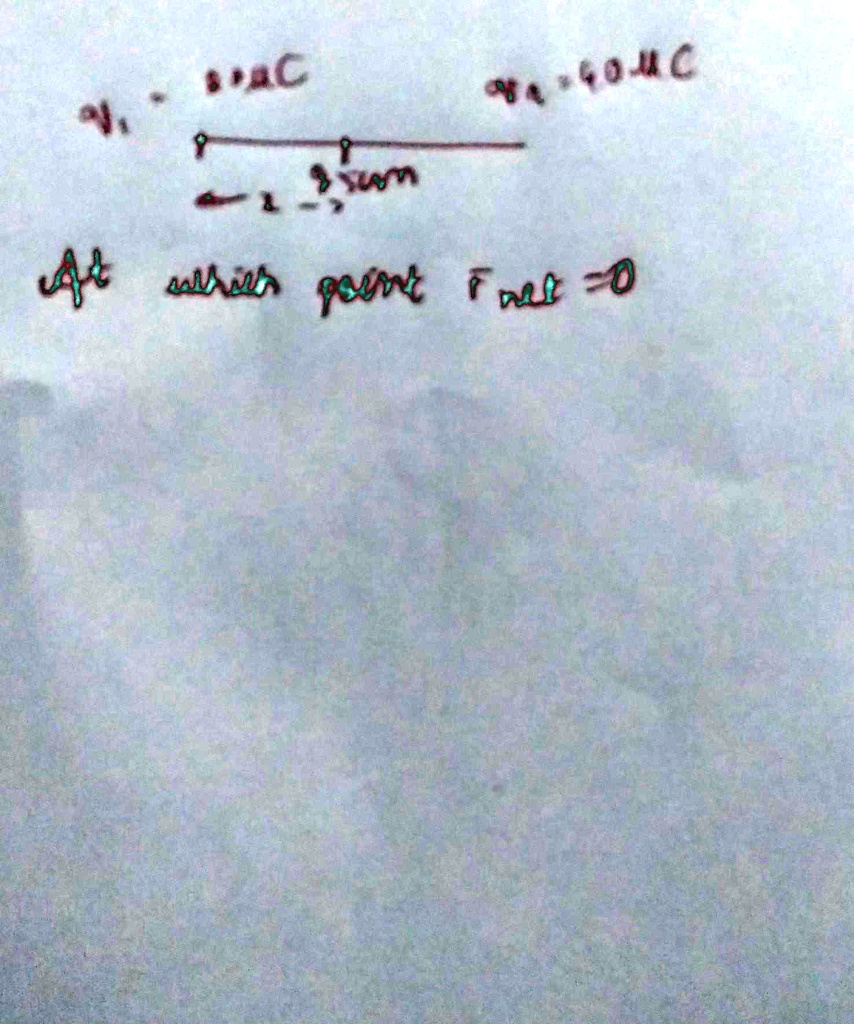 q₁ = μC q₂ = 40 μC
cm
← x →
At which point F net = 0